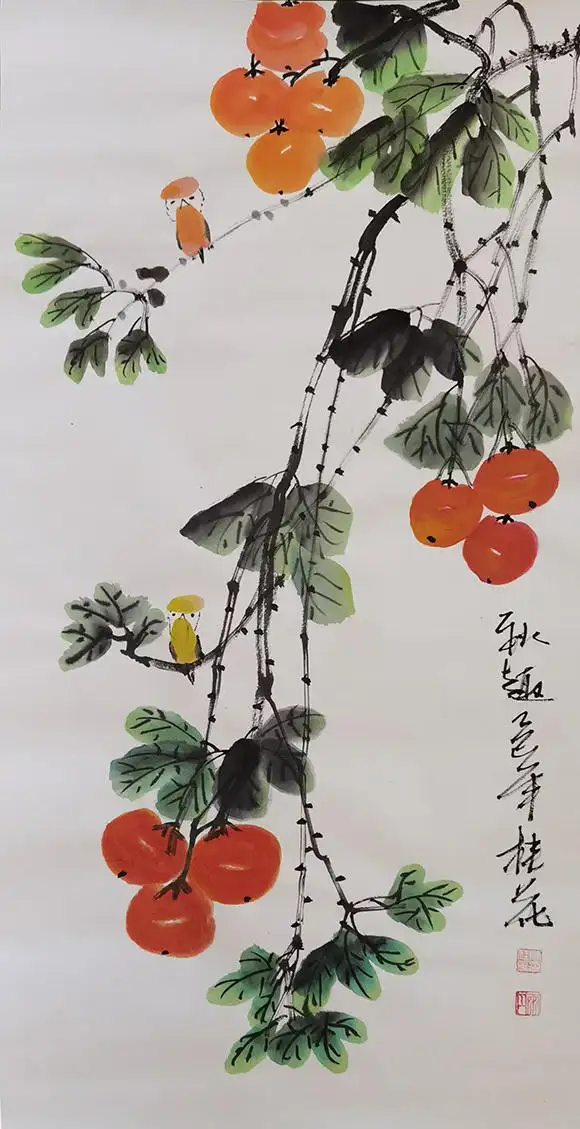 秋趣乙巳年桂花